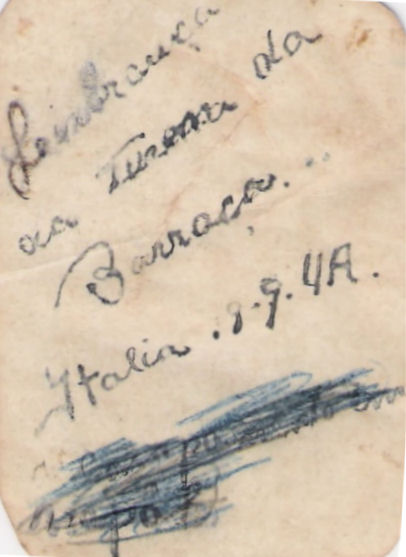 Lembrança
da Turma da
Barraca...
Italia . 8.9.44.